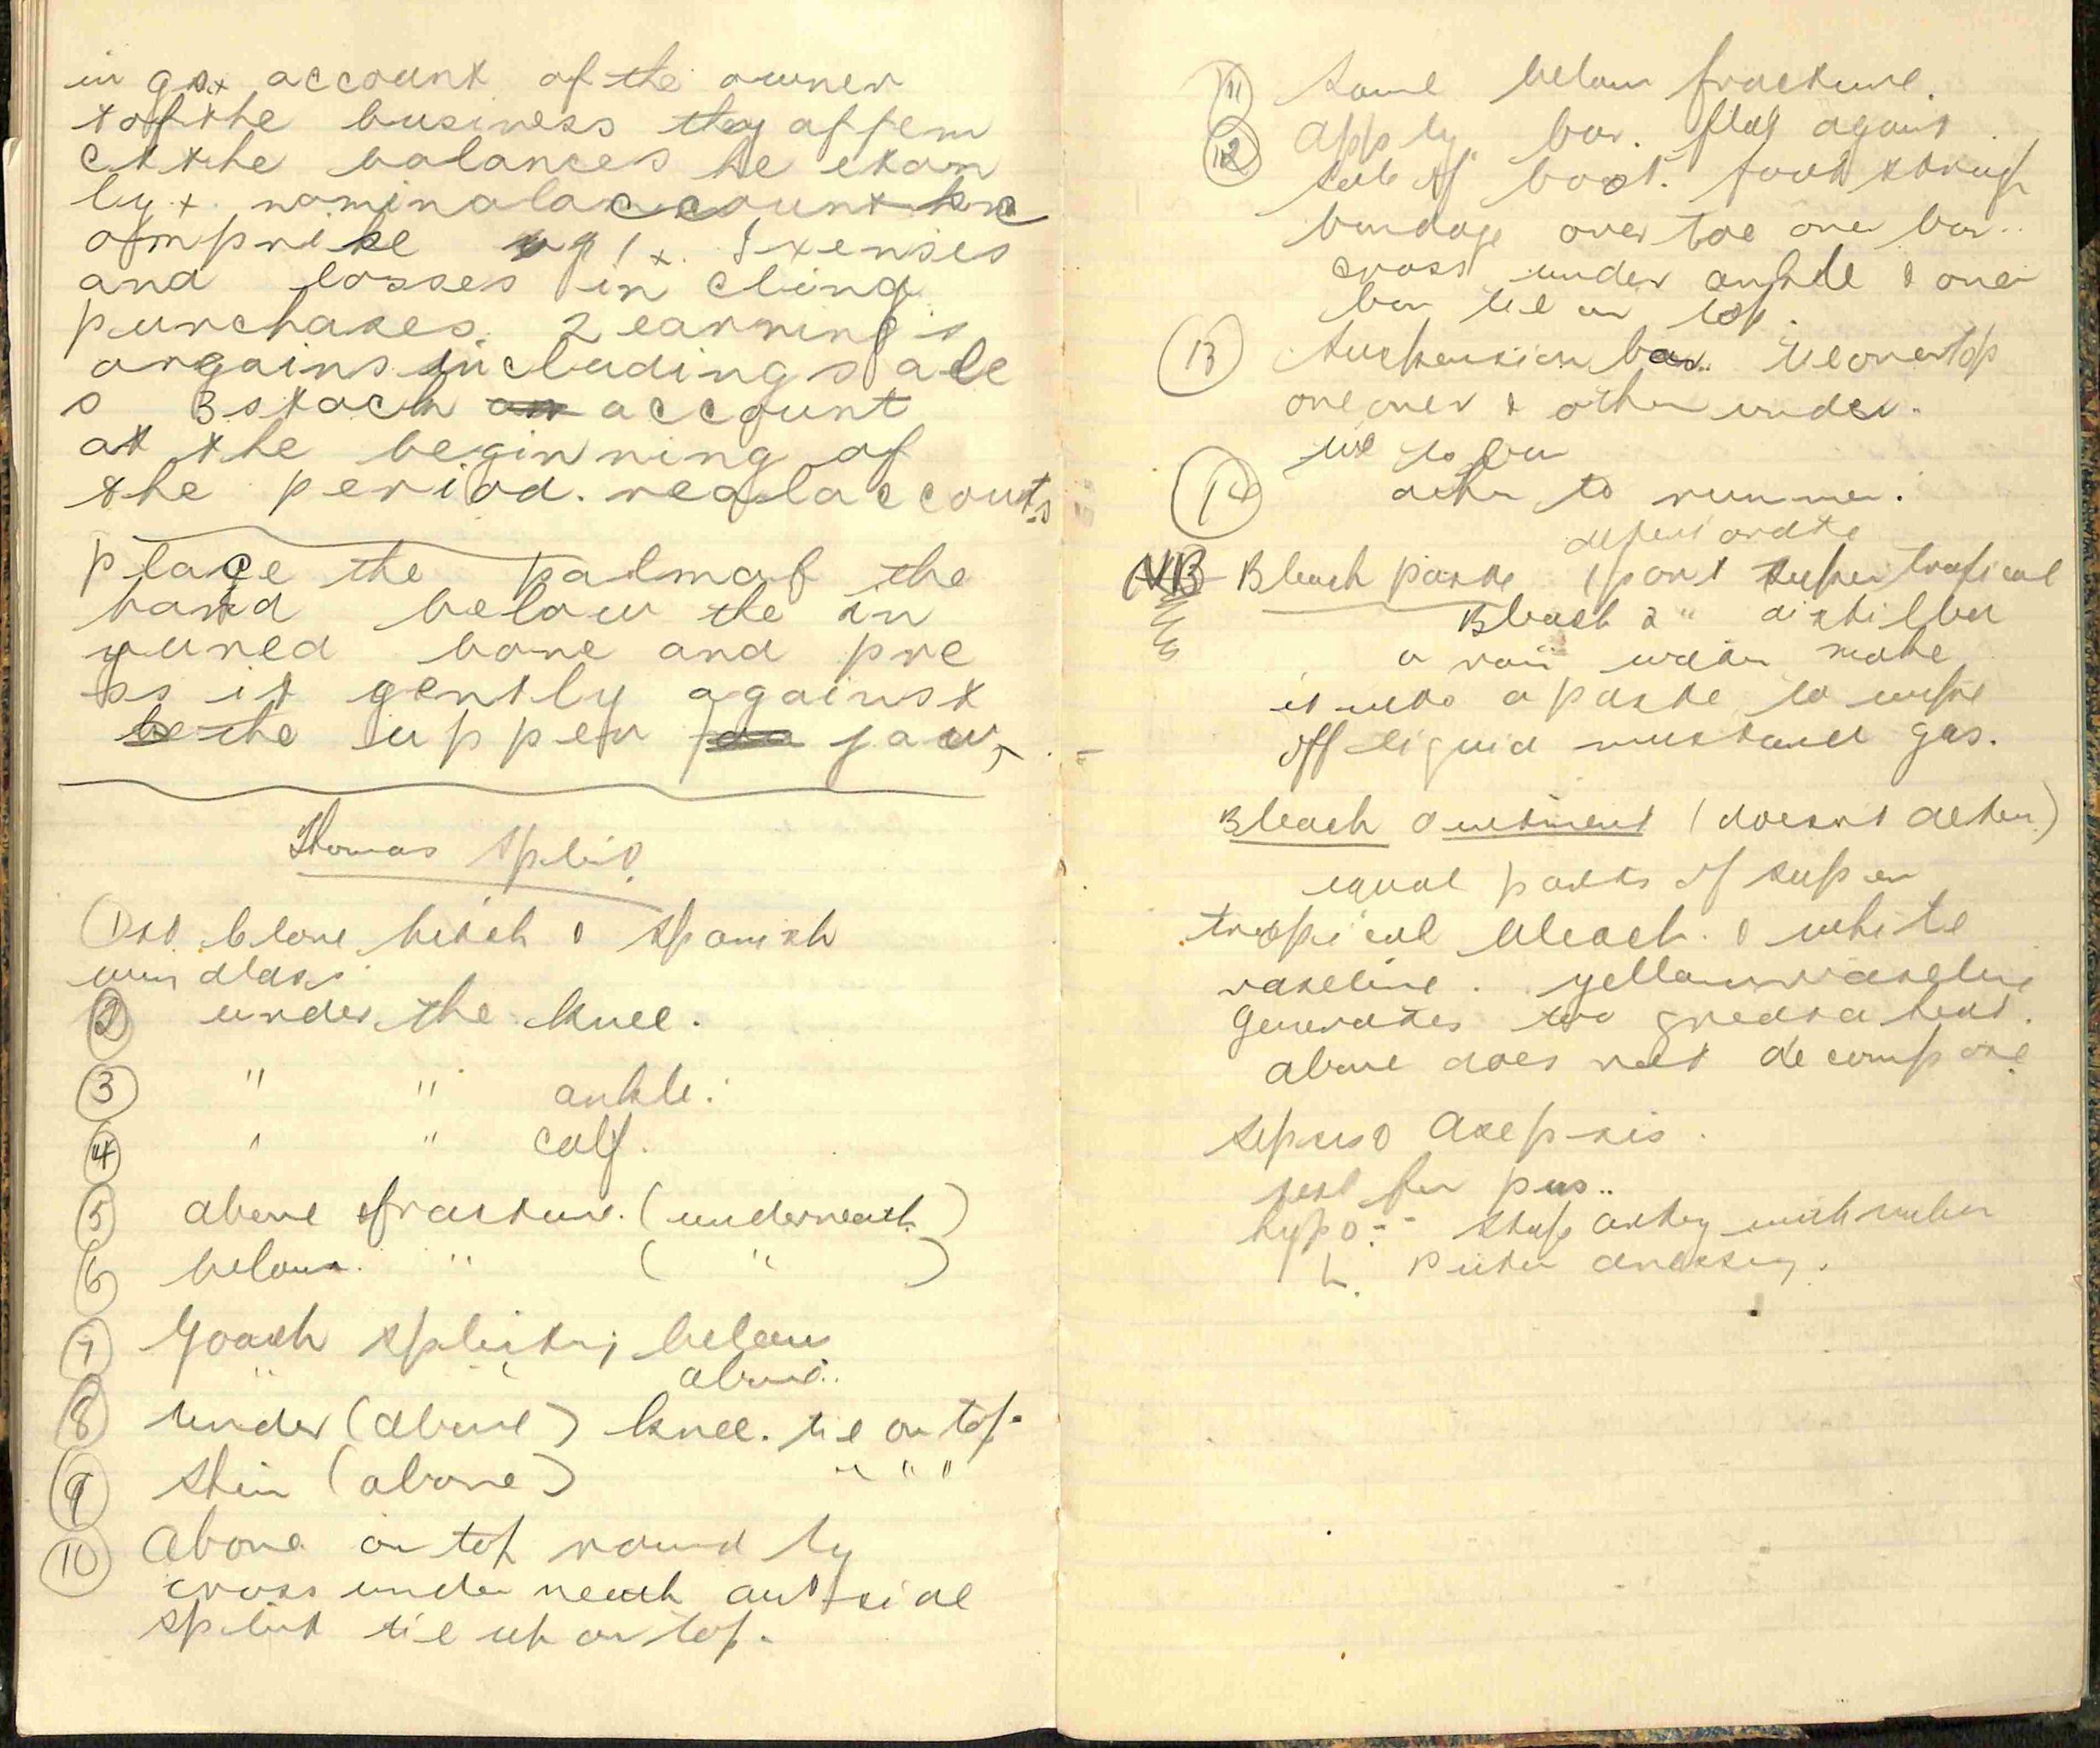 account of the owner
+ of the business they affem
ct the balances he exan
ly +. nominal account kc
omprise 1 +. Exenses
and losses in cling
purchases. 2 earnings
orgains including s ale
s 3 stock an account
at the beginning of
the period. real accounts
place the palm of the
hand below the in
jured bone and pre
ss it gently against
be the upper jaw,
Thomas Splint.
(1) clove hitch & Spanish
windlass.
(2) under the knee.
(3) " " ankle.
(4) " " calf.
(5) above fracture. (underneath)
(6) below. " ( " )
(7) Gooch splints; below
" " above..
(8) under (above) knee. tie on top.
(9) shin (above) " " "
(10) Above on top round by
cross underneath outside
splint tie up on top.
(11) Same below fracture.
(12) apply bar. flat against
sole of boot.
bandage over toe over bar..
cross under ankle & over
bar tie on top.
(13) Suspension bar.. tie over top
one over & other under.
tie to bar
(14) other to runner.
NB Bleach paste 1 part super tropical
Bleach 2 " distilled
or rain water make
it into a paste to wipe
off liquid mustard gas.
Bleach Ointment (doesnt)
equal parts of super
tropical bleach. & white
vaseline. yellow vaseline
generates too great a heat.
above does not decompose
sepsis & Asepsis.
test for pus..
hypo:-
dressing.